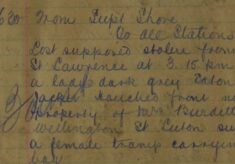 From Supt Shore
To all Stations
Lost supposed stolen from
St Lawrence at 3.15 pm
a lady's dark grey Eton
Jacket
property of Mrs Burdett
Wellington St Luton su
a female tramp carrying